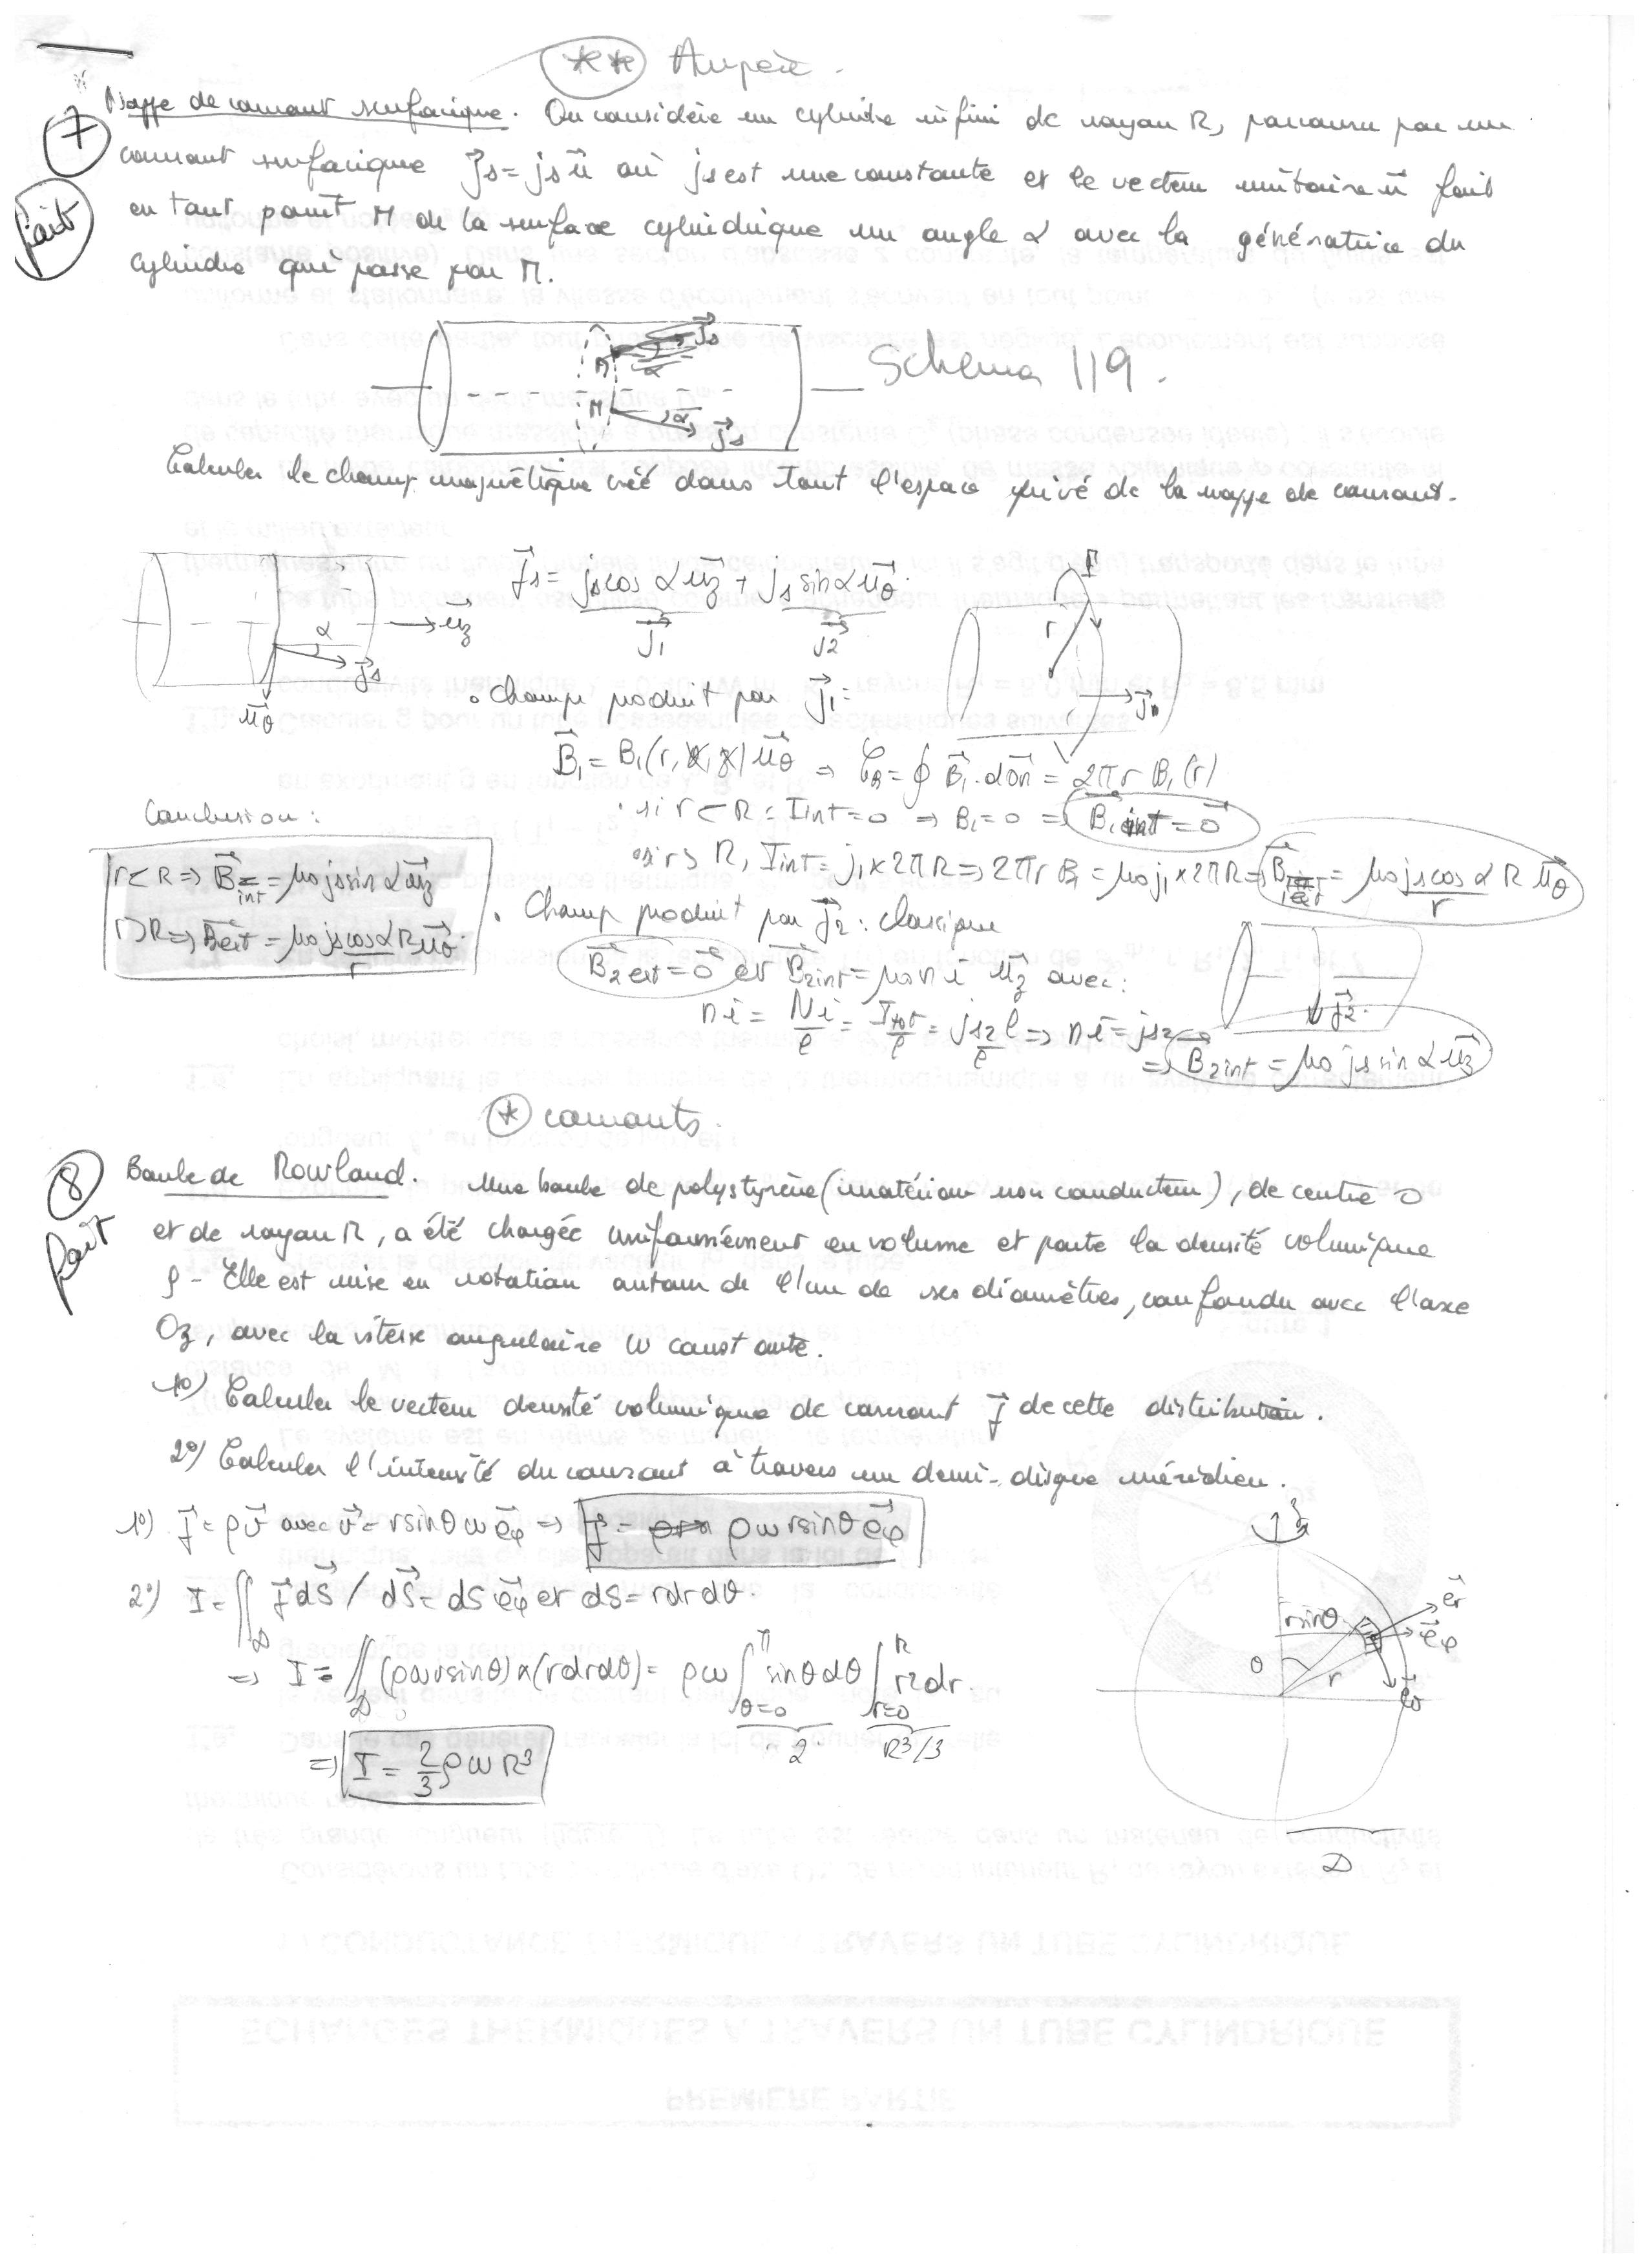 ** Ampère.
7 Nappe de courant surfacique. On considère un cylindre infini de rayon R, parcouru par un
fait
courant surfacique js = js u où js est une constante et le vecteur unitaire u fait
en tout point M de la surface cylindrique un angle α avec la génératrice du
cylindre qui passe par M.
M α js
M α js
Schéma 119.
Calculer le champ magnétique créé dans tout l'espace privé de la nappe de courant.
α uz js uθ
js = js cos α uz + js sin α uθ.
j1 j2
Γ r j1
• Champ produit par j1 :
B1 = B1(r, θ, z) uθ ⇒ CB = ∮ B1 . dOM = 2πr B1(r)
• si r < R : Iint = 0 ⇒ B1 = 0 ⇒ B1 int = 0
• si r > R, Iint = j1 × 2πR ⇒ 2πr B1 = μ0 j1 × 2πR ⇒ B1 ext = μ0 js cos α R / r uθ
Conclusion :
r < R ⇒ Bint = μ0 js sin α uz
r > R ⇒ Bext = μ0 js cos α R / r uθ.
• Champ produit par j2 : classique
B2 ext = 0 et B2 int = μ0 n i uz avec :
n i = N i / l = Itot / l = js2 l / l ⇒ n i = js2
⇒ B2 int = μ0 js sin α uz
j2.
* courants.
8 Boule de Rowland. Une boule de polystyrène (matériau non conducteur), de centre O
fait
et de rayon R, a été chargée uniformément en volume et porte la densité volumique
ρ - Elle est mise en rotation autour de l'un de ses diamètres, confondu avec l'axe
Oz, avec la vitesse angulaire ω constante.
1°) Calculer le vecteur densité volumique de courant j de cette distribution.
2°) Calculer l'intensité du courant à travers un demi-disque méridien.
1°) j = ρv avec v = r sinθ ω eφ ⇒ j = ρ ω r sinθ eφ
2°) I = ∬D j dS / dS = dS eφ et dS = r dr dθ.
⇒ I = ∬D (ρωr sinθ) × (r dr dθ) = ρω ∫θ=0^π sinθ dθ ∫r=0^R r² dr.
2 R³/3
⇒ I = 2/3 ρ ω R³
z r sinθ er eφ θ r eθ
D